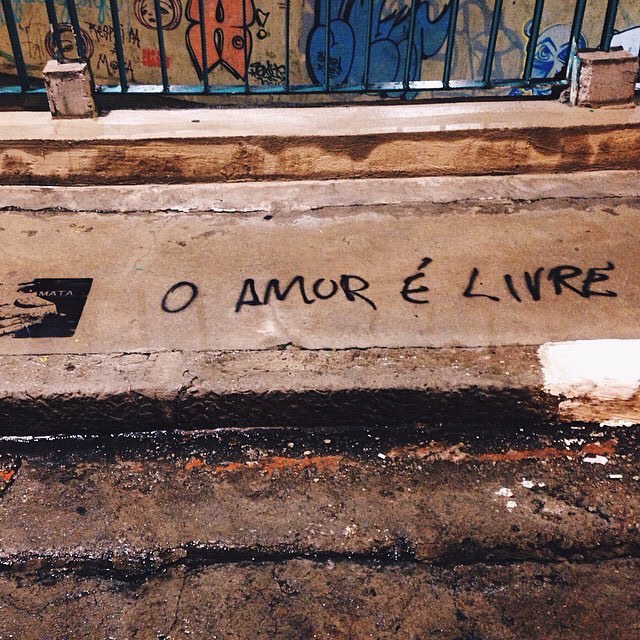 MATA
O AMOR É LIVRE